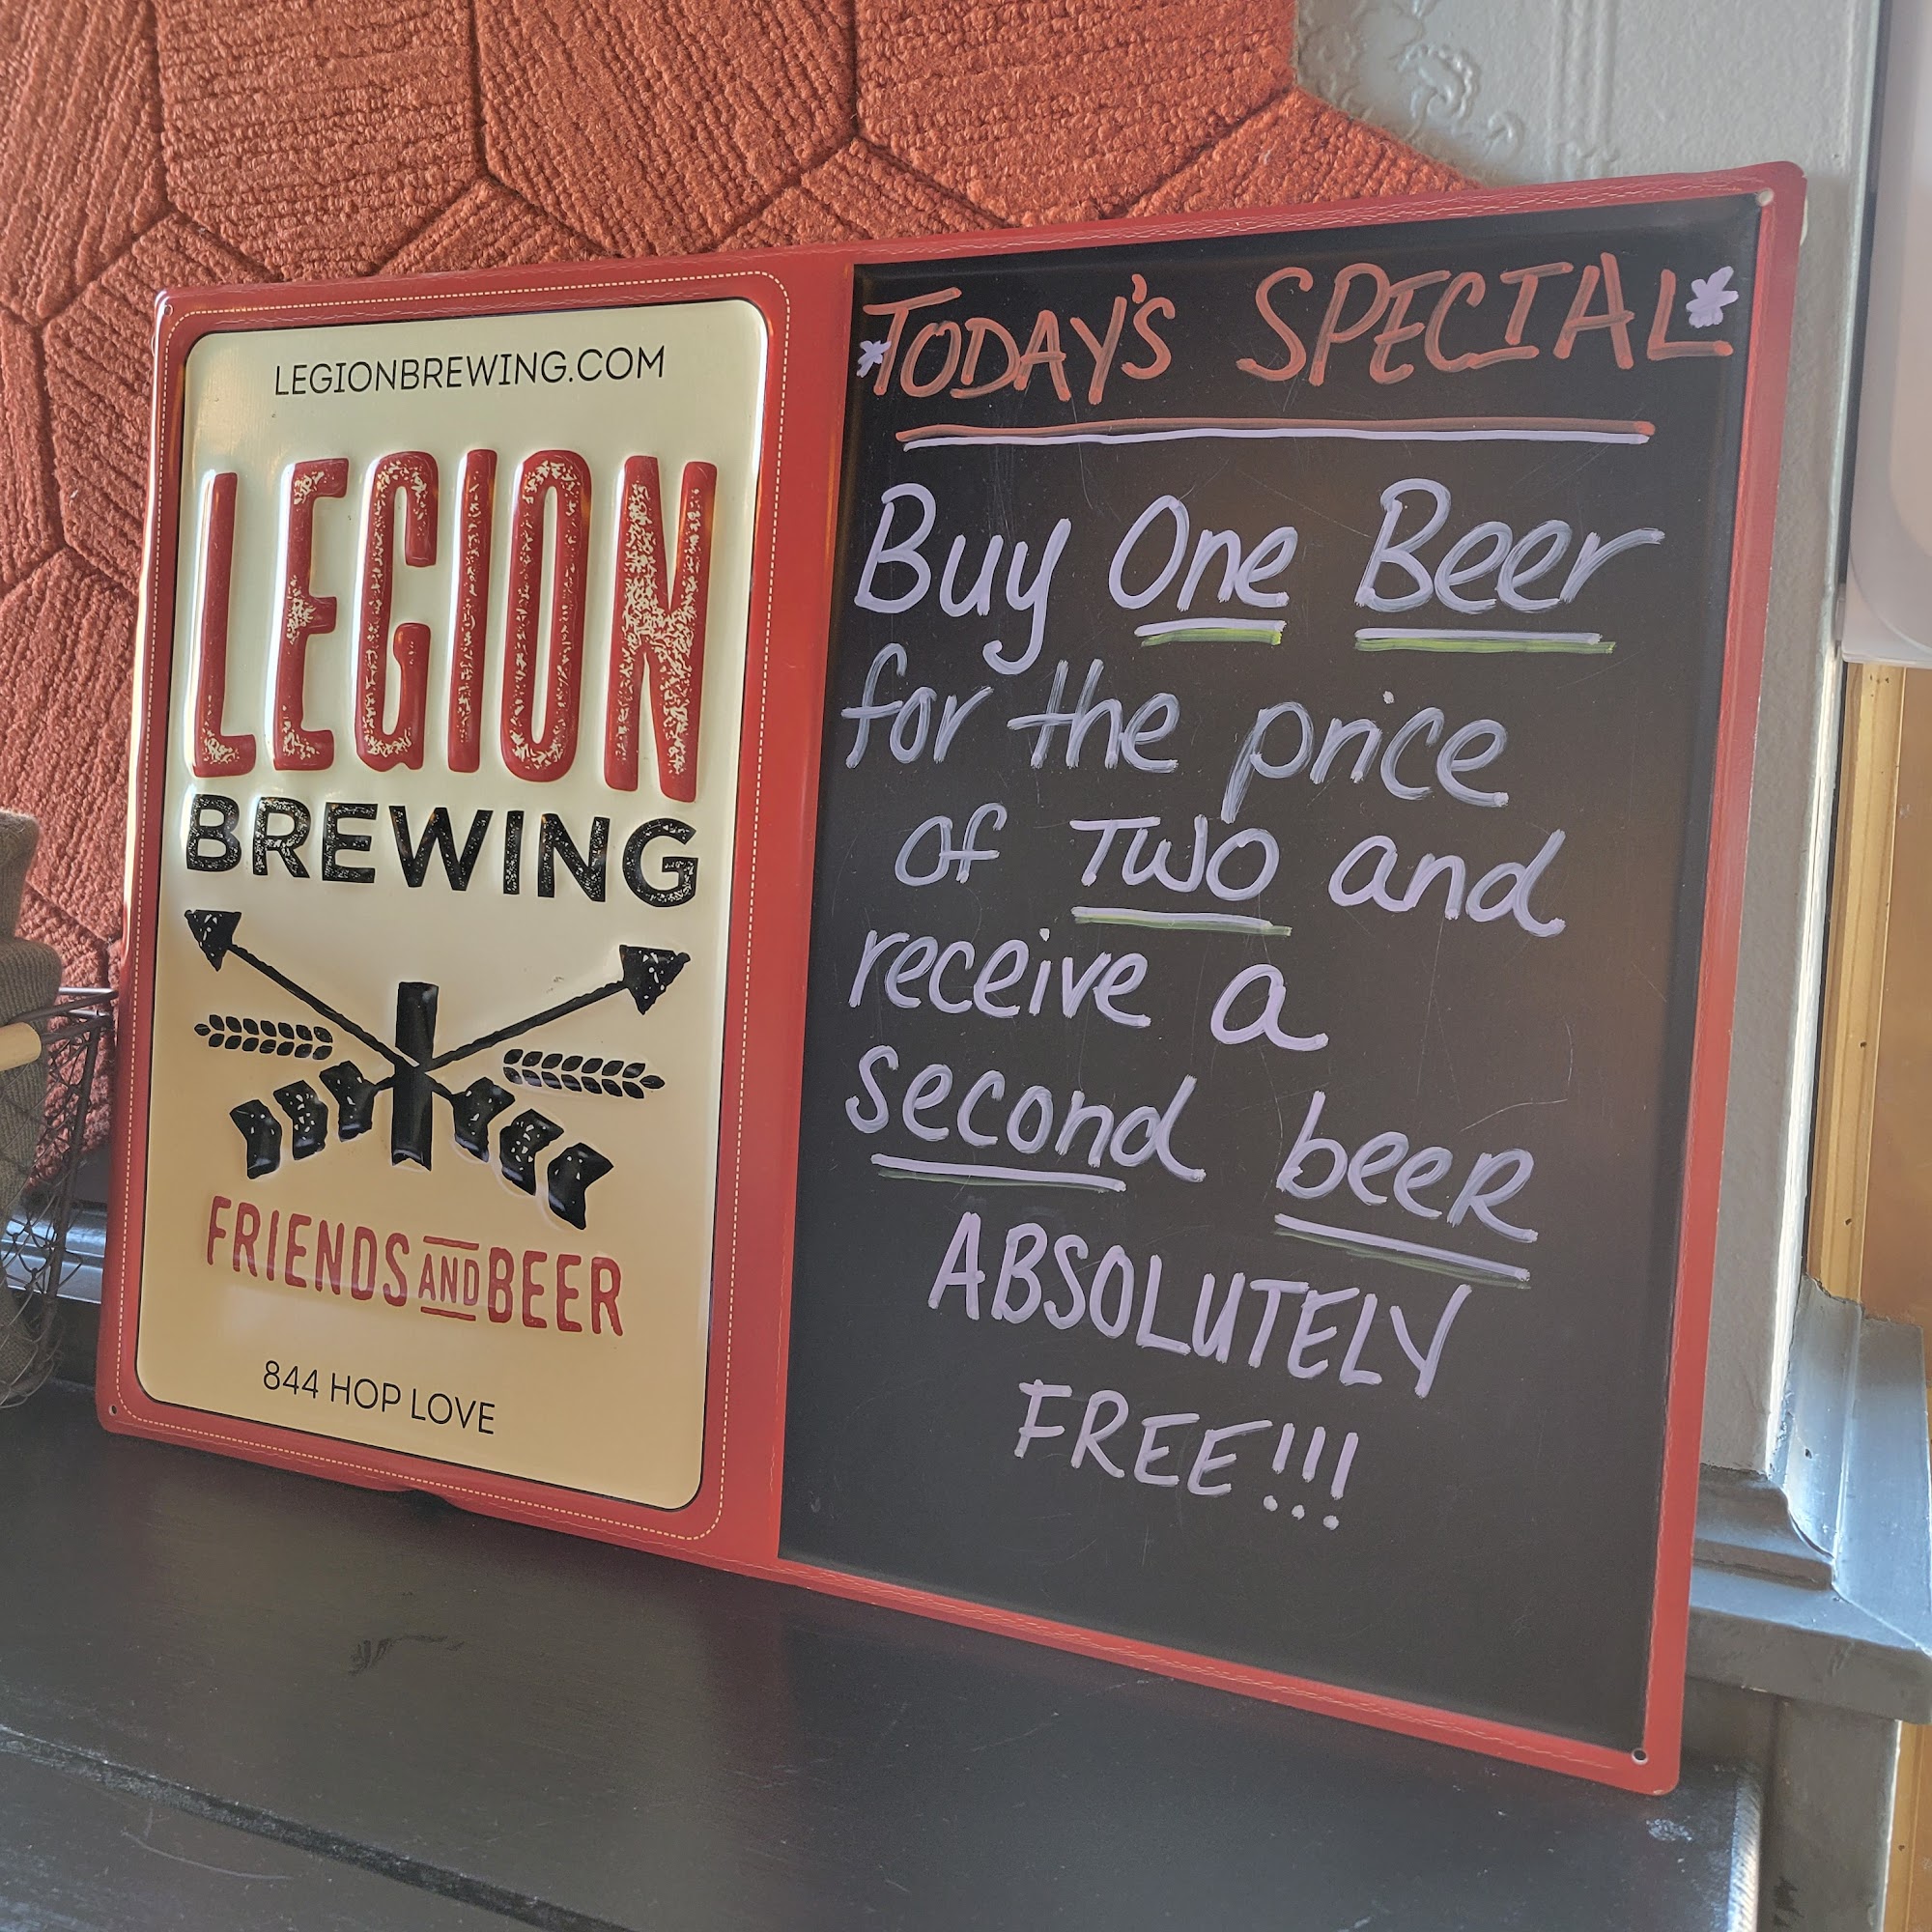 LEGIONBREWING.COM
LEGION
BREWING
FRIENDS AND BEER
844 HOP LOVE
*TODAY'S SPECIAL*
Buy One Beer
for the price
of TWO and
receive a
second beeR
ABSOLUTELY
FREE!!!